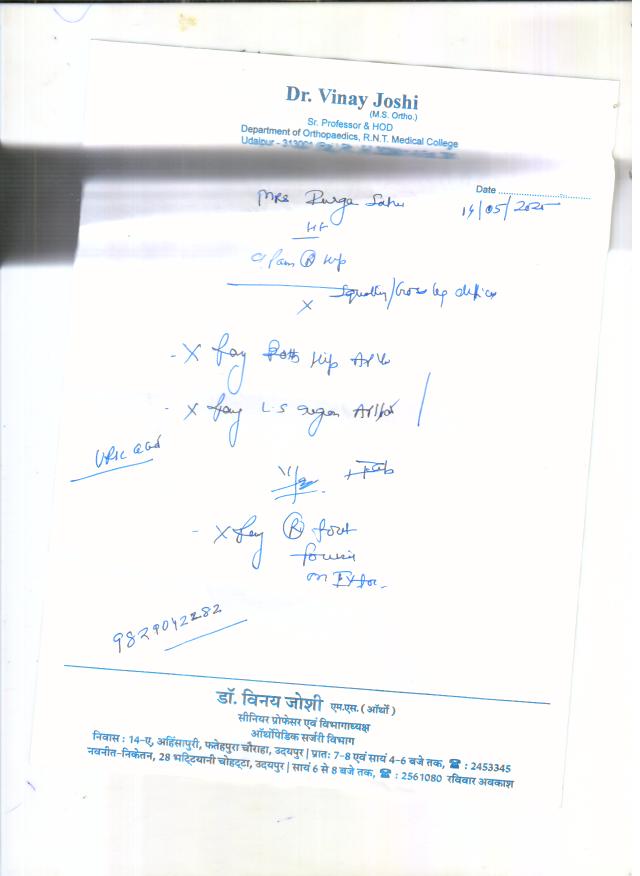 Dr. Vinay Joshi
(M.S. Ortho.)
Sr. Professor & HOD
Department of Orthopaedics, R.N.T. Medical College
Udaipur - 313001
Date ..............................
14/05/2025
Mrs Durga Sahu
Pain Ⓡ Hip
Squatting/Cross leg
X
- X Ray Both Hip AP
- X Ray L-S region AP/Lat
Uric acid
- X Ray Ⓡ foot
9829042282
डॉ. विनय जोशी एम.एस. (ऑर्थो)
सीनियर प्रोफेसर एवं विभागाध्यक्ष
ऑर्थोपेडिक सर्जरी विभाग
निवास : 14-ए, अहिंसापुरी, फतेहपुरा चौराहा, उदयपुर | प्रातः 7-8 एवं सायं 4-6 बजे तक, ☎ : 2453345
नवनीत-निकेतन, 28 भट्टियानी चोहट्टा, उदयपुर | सायं 6 से 8 बजे तक, ☎ : 2561080 रविवार अवकाश